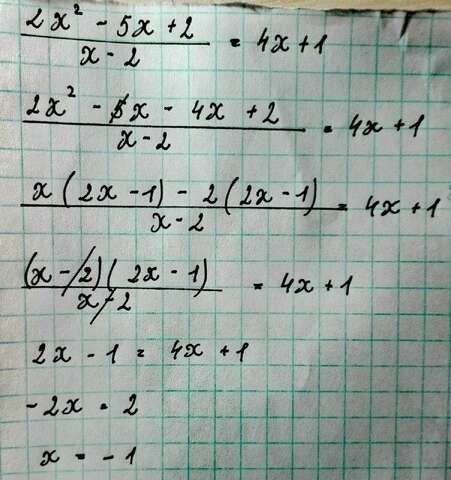 (2x² - 5x + 2)/(x - 2) = 4x + 1
(2x² - x - 4x + 2)/(x - 2) = 4x + 1
(x(2x - 1) - 2(2x - 1))/(x - 2) = 4x + 1
((x - 2)(2x - 1))/(x - 2) = 4x + 1
2x - 1 = 4x + 1
-2x = 2
x = -1